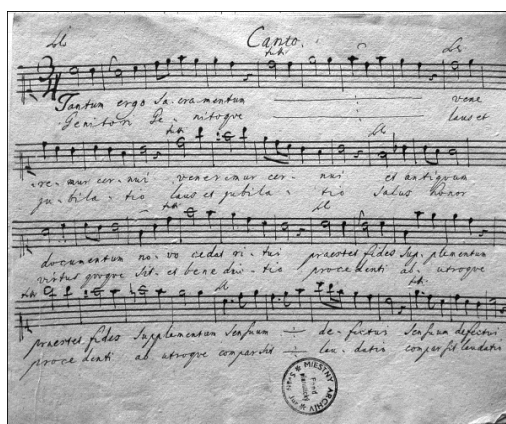 Canto.
Tantum ergo Sacramentum vene
Genitori Ge- nitoque laus et
-re- mur cer- nui veneremur cer- nui et antiquum
ju- bila- tio laus et jubila- tio Salus honor
documentum no- vo cedat ri- tui praestet fides Sup- plementum
virtus quoque Sit et bene dic- tio procedenti ab utroque
praestet fides Supplementum Sensuum de- fectui Sensuum defectui
procedenti ab utroque compar Sit lau- datio compar sit laudatio
MIESTNY ARCHÍV
Fond